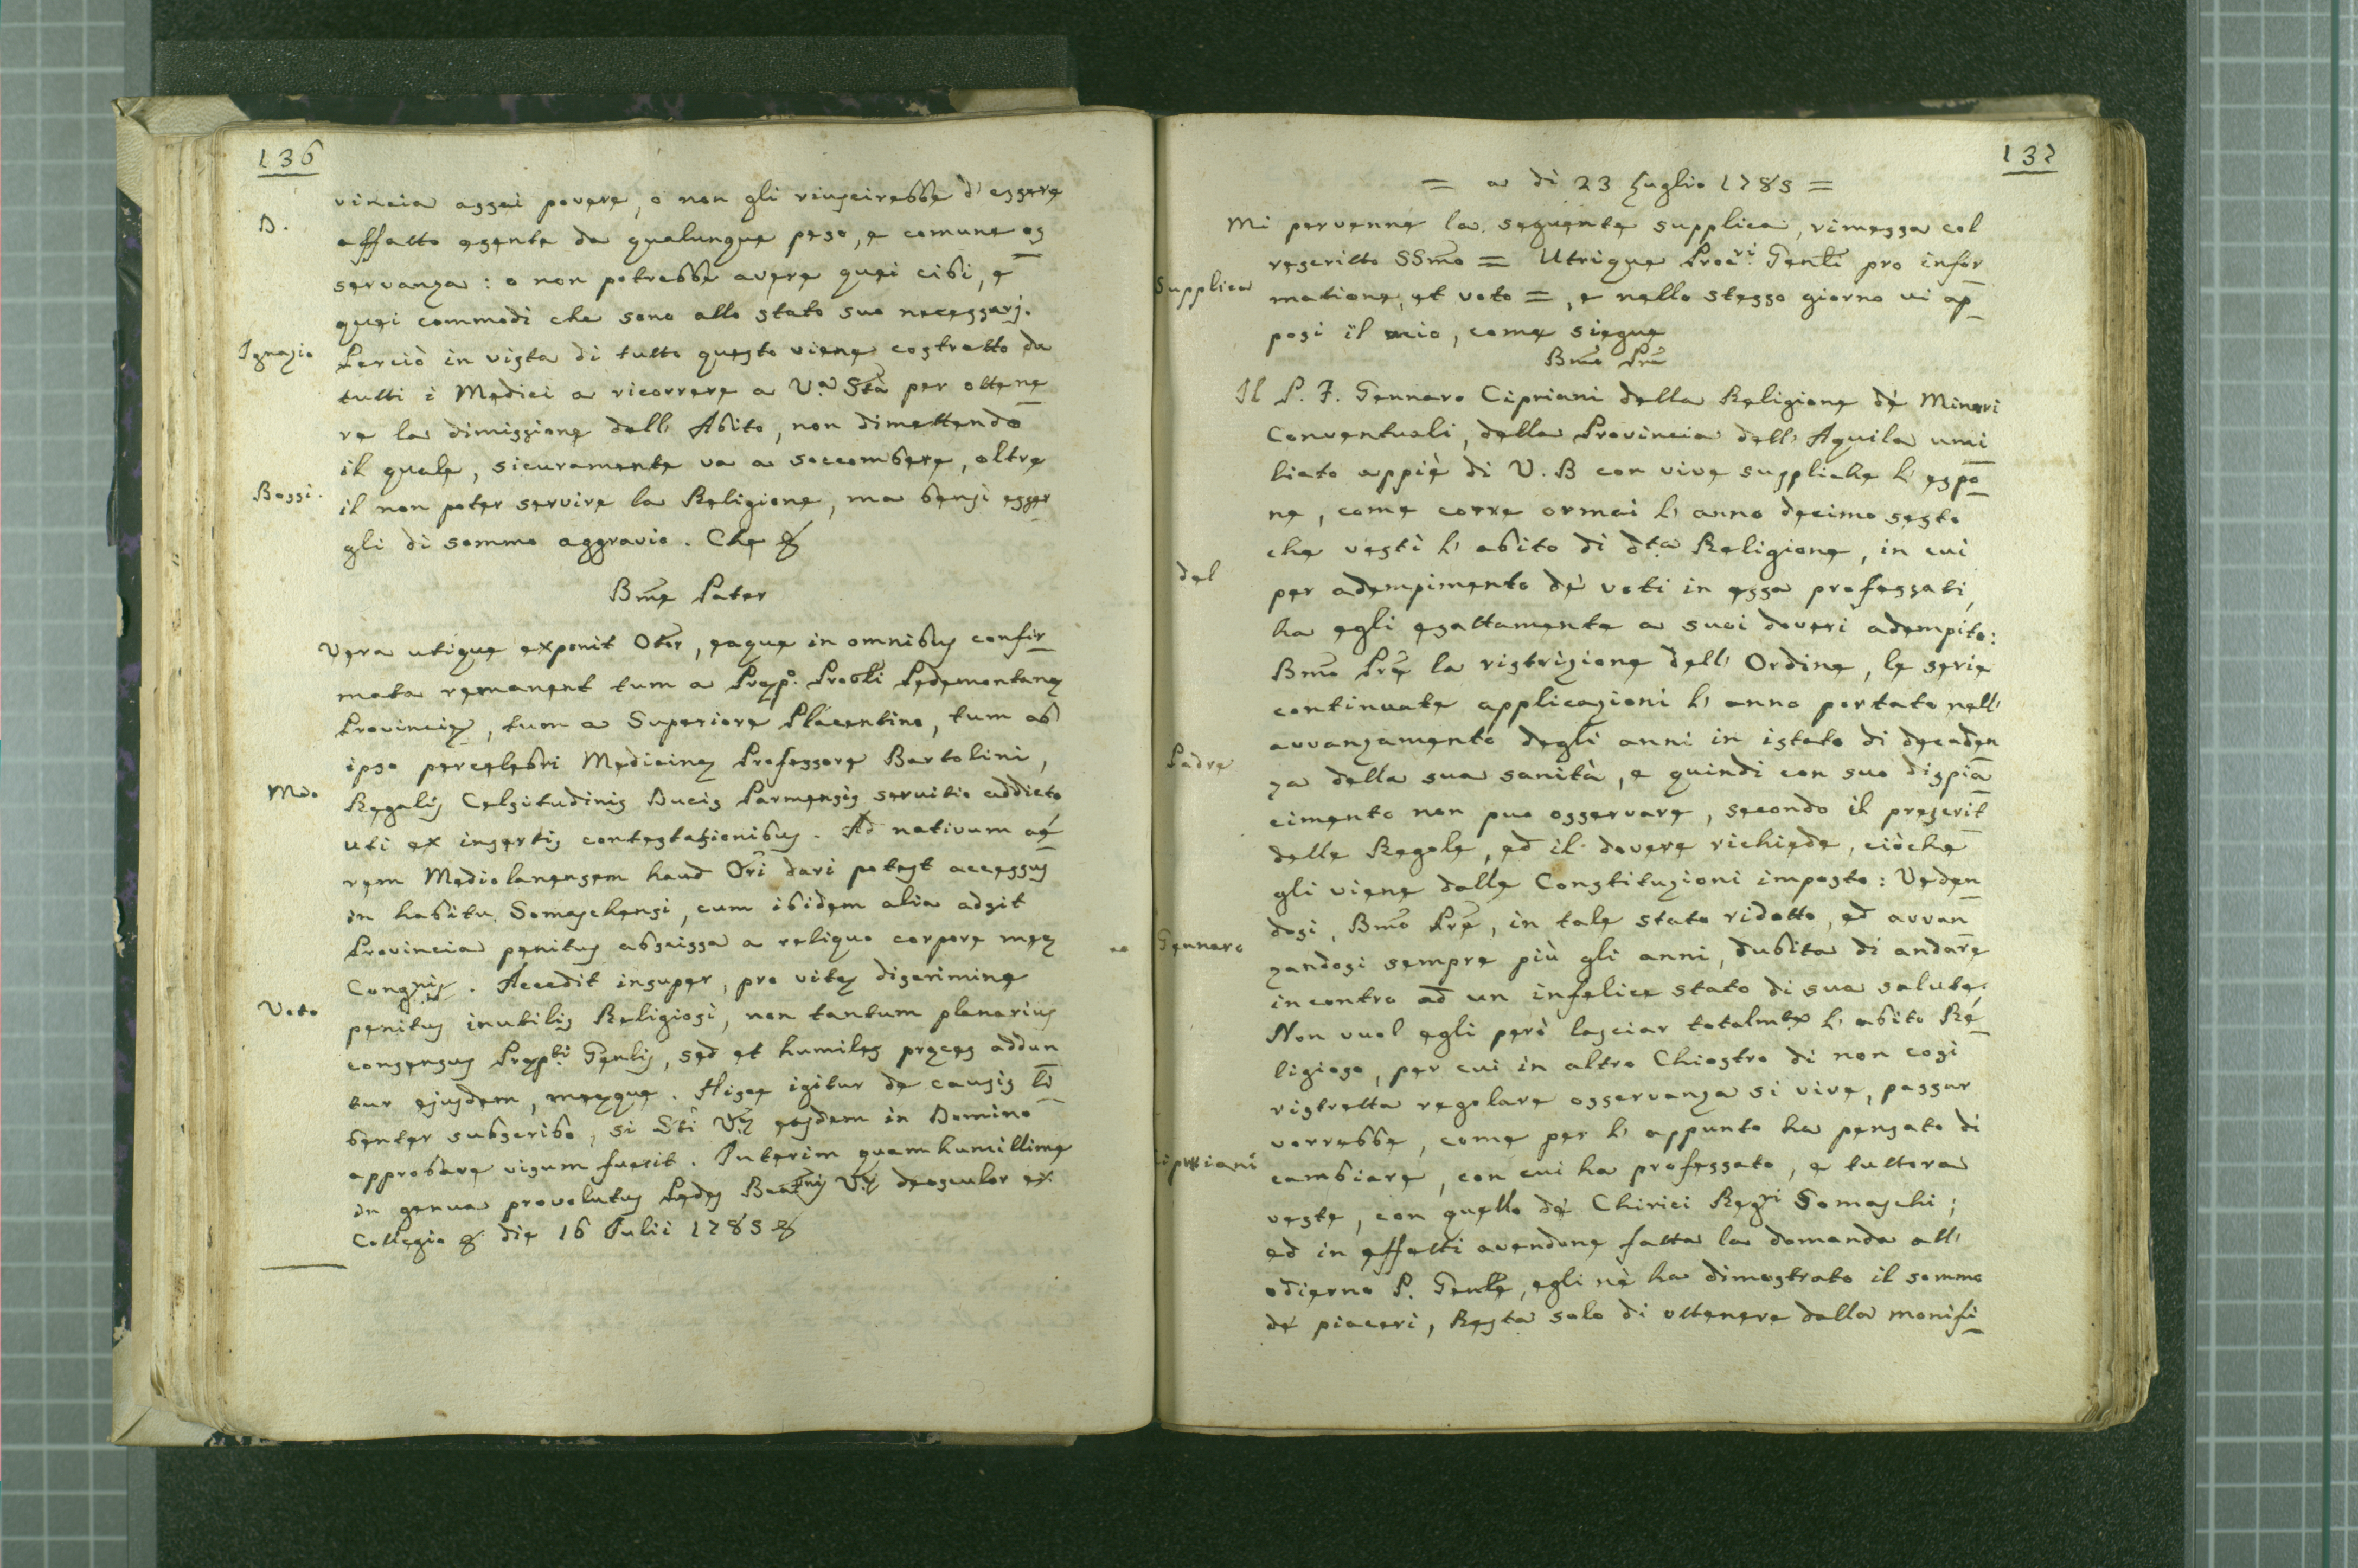 136
vincia assai povere, o non gli riuscirebbe d' essere
D.
affatto esente da qualunque peso, e comune os
servanza: o non potrebbe avere quei cibi, e
quei commodi che sono allo stato suo necessarj.
Ignazio
Perciò in vista di tutto questo viene costretto da
tutti i Medici a ricorrere a V.a Stà per ottene
re la dimissione dell' Abito, non dimettendo
il quale, sicuramente va a soccombere, oltre
Bossi.
il non poter servire la Religione, ma bensì esser
gli di sommo aggravio. Che &
Bme Pater
Vera utique exponit Otor, eaque in omnibus confir
mata remanent tum a Præp.o Provli Pedemontanæ
Provinciæ, tum a Superiore Placentino, tum ab
ipso percelebri Medicinæ Professore Bartolini,
Mio
Regalis Celsitudinis Ducis Parmensis servitio addicto
uti ex insertis contestationibus. Ad nativum aë
rem Mediolanensem haud Ori dari potest accessus
in habitu Somaschensi, cum ibidem alia adsit
Provincia penitus abscissa a reliquo corpore meæ
Congnis. Accedit insuper, pro vitæ discrimine
Voto
penitus inutilis Religiosi, non tantum plenarius
consensus Præpti Genlis, sed et humiles preces addun
tur ejusdem, meæque. Hisce igitur de causis li
benter subscribo, si Sti Væ easdem in Domino
approbare visum fuerit. Interim quam humillime
in genua provolutus Pedes Beatnis Væ deosculor ex
Collegio & die 16 Julii 1785 &
137
= a di 23 Luglio 1785 =
Mi pervenne la seguente supplica, rimessa col
rescritto SSmo = Utrique Procri Genli pro infor
Supplica
matione, et voto =, e nello stesso giorno vi ap
posi il mio, come siegue
Bmo Pre
Il P. F. Gennaro Cipriani della Religione dè Minori
Conventuali, della Provincia dell' Aquila umi
liato appiè di V. B con vive suppliche l' espo
ne, come corre ormai l' anno decimo sesto
che vestì l' abito di dta Religione, in cui
del
per adempimento dè voti in essa professati,
ha egli esattamente a suoi doveri adempito:
Bmo Pre la ristrizione dell' Ordine, le serie
continuate applicazioni l' anno portato nell'
avvanzamento degli anni in istato di decaden
Padre
za della sua sanità, e quindi con suo dispia
cimento non puo osservare, secondo il prescrit
delle Regole, ed il dovere richiede, ciòche
gli viene dalle Constituzioni imposto: Veden
dosi, Bmo Pre, in tale stato ridotto, ed avvan
Gennaro
zandosi sempre più gli anni, dubita di andare
incontro ad un infelice stato di sua salute.
Non vuol egli però lasciar totalmte l' abito Re
ligioso, per cui in altro Chiostro di non così
ristretta regolare osservanza si vive, passar
vorrebbe, come per l' appunto ha pensato di
Cipriani
cambiare, con cui ha professato, e tuttora
veste, con quello dè Chirici Regri Somaschi;
ed in effetti avendone fatta la domanda all'
odierno P. Genle, egli nè ha dimostrato il sommo
dè piaceri, Resta solo di ottenere dalla monifi